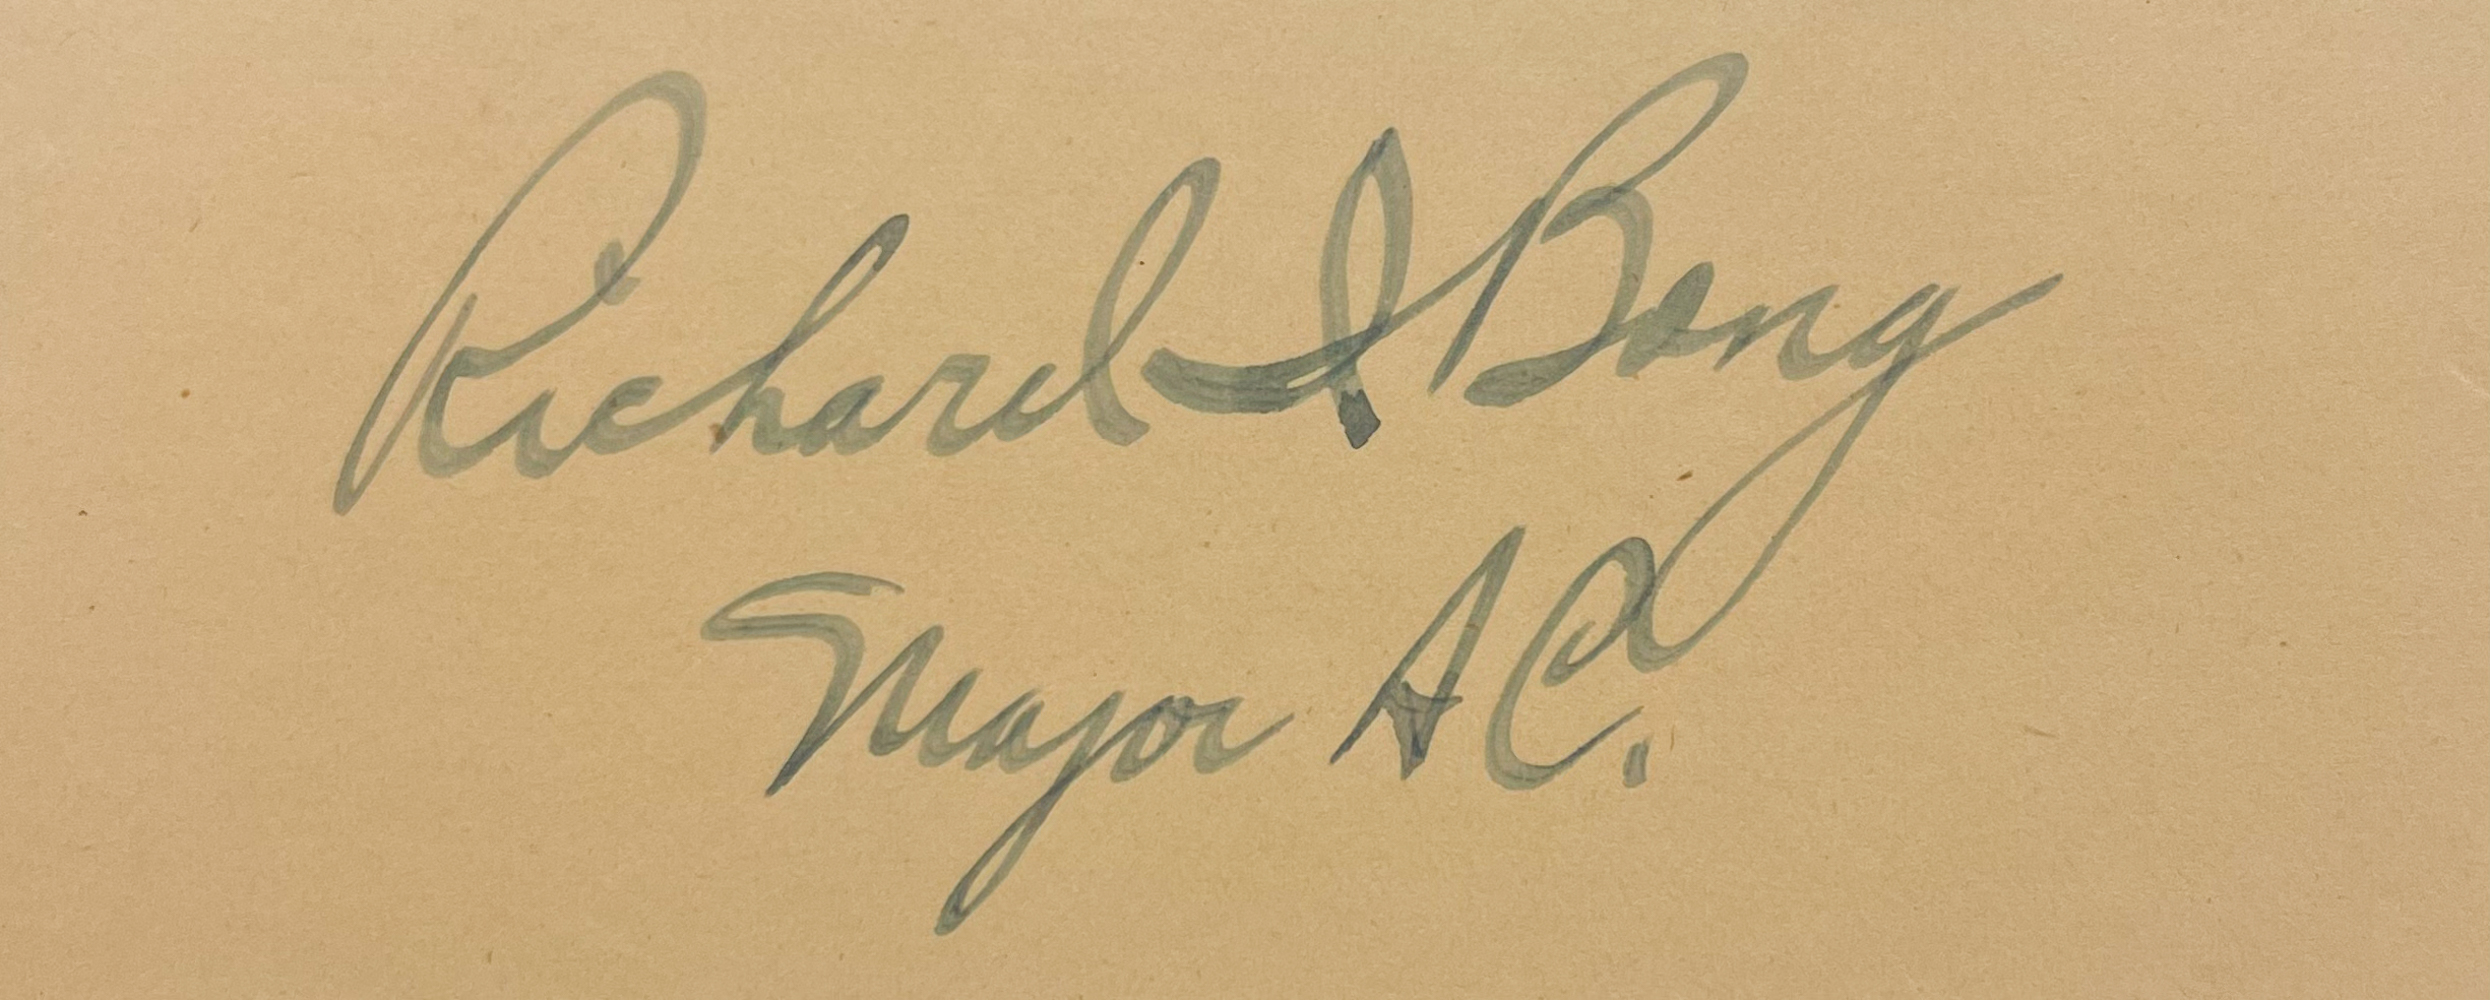 Richard I Bong
Major A C.